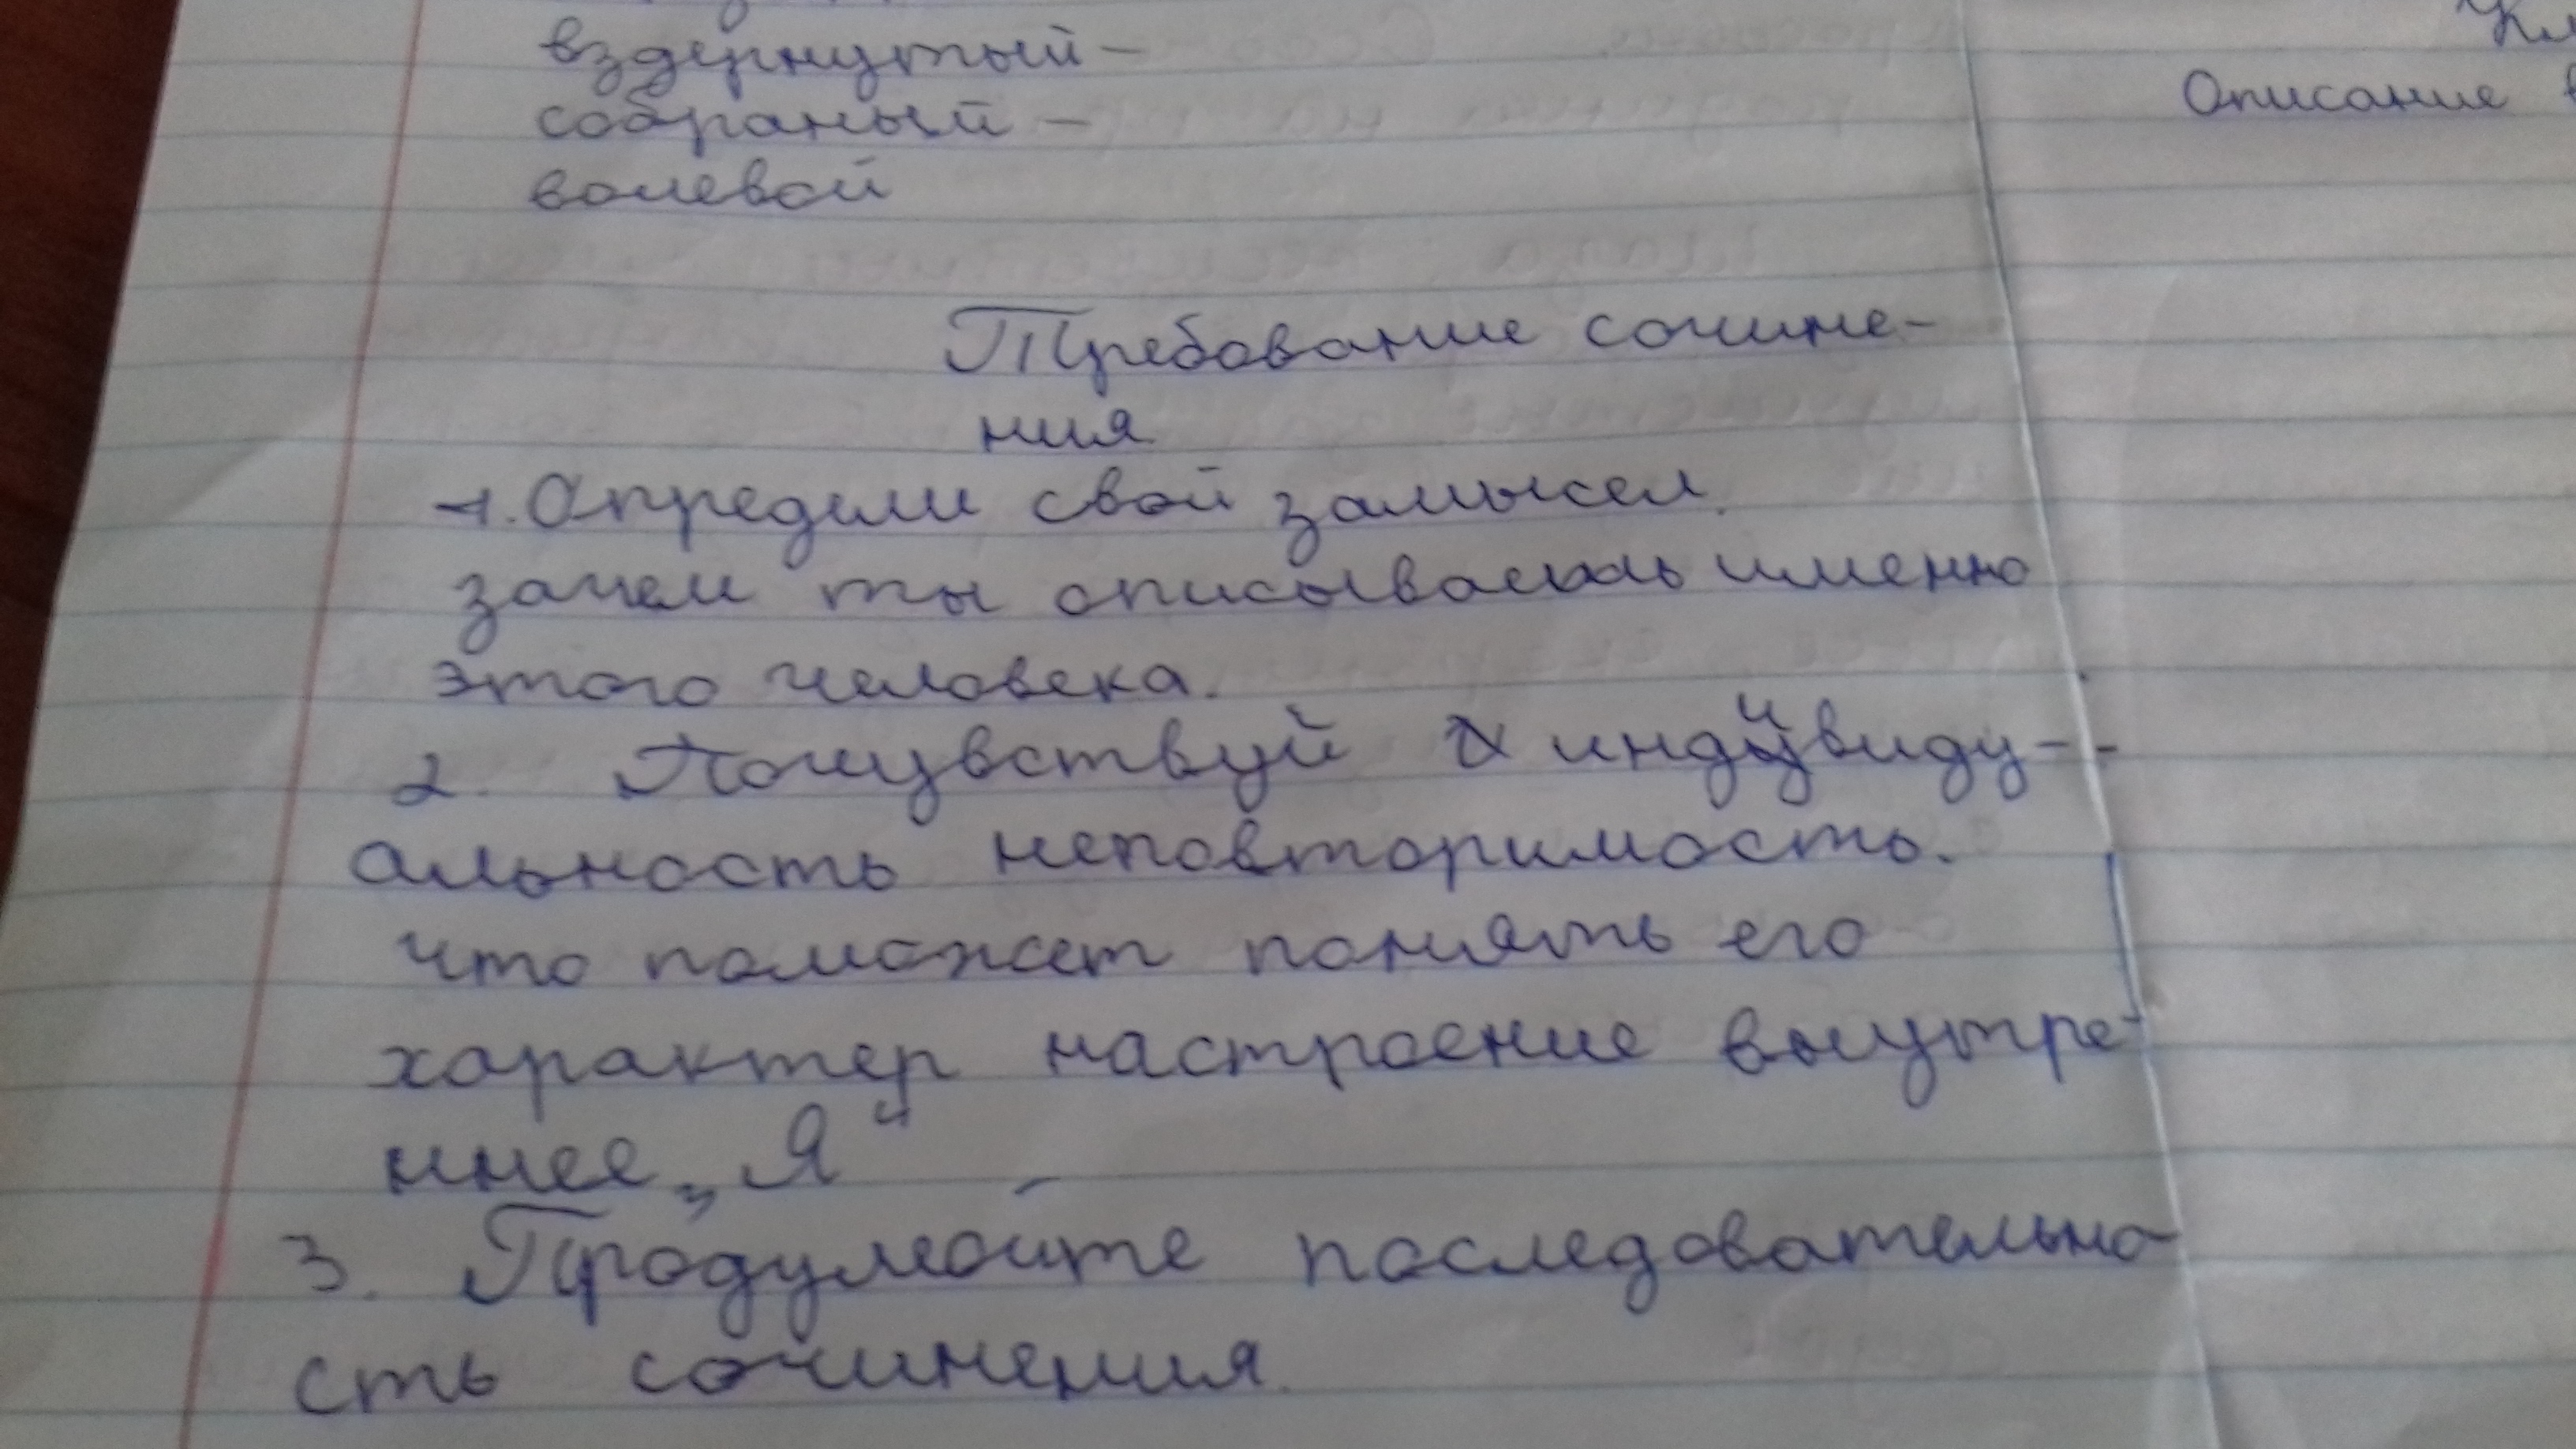 вздёрнутый -
собраный -
волевой
Требование сочине-
ния
1. Определи свой замысел.
зачем ты описываешь именно
этого человека.
2. Почувствуй индивиду-
альность неповторимость.
что поможет понять его
характер настроение внутре-
ннее „Я“
3. Продумайте последовательно-
сть сочинения.
Описание